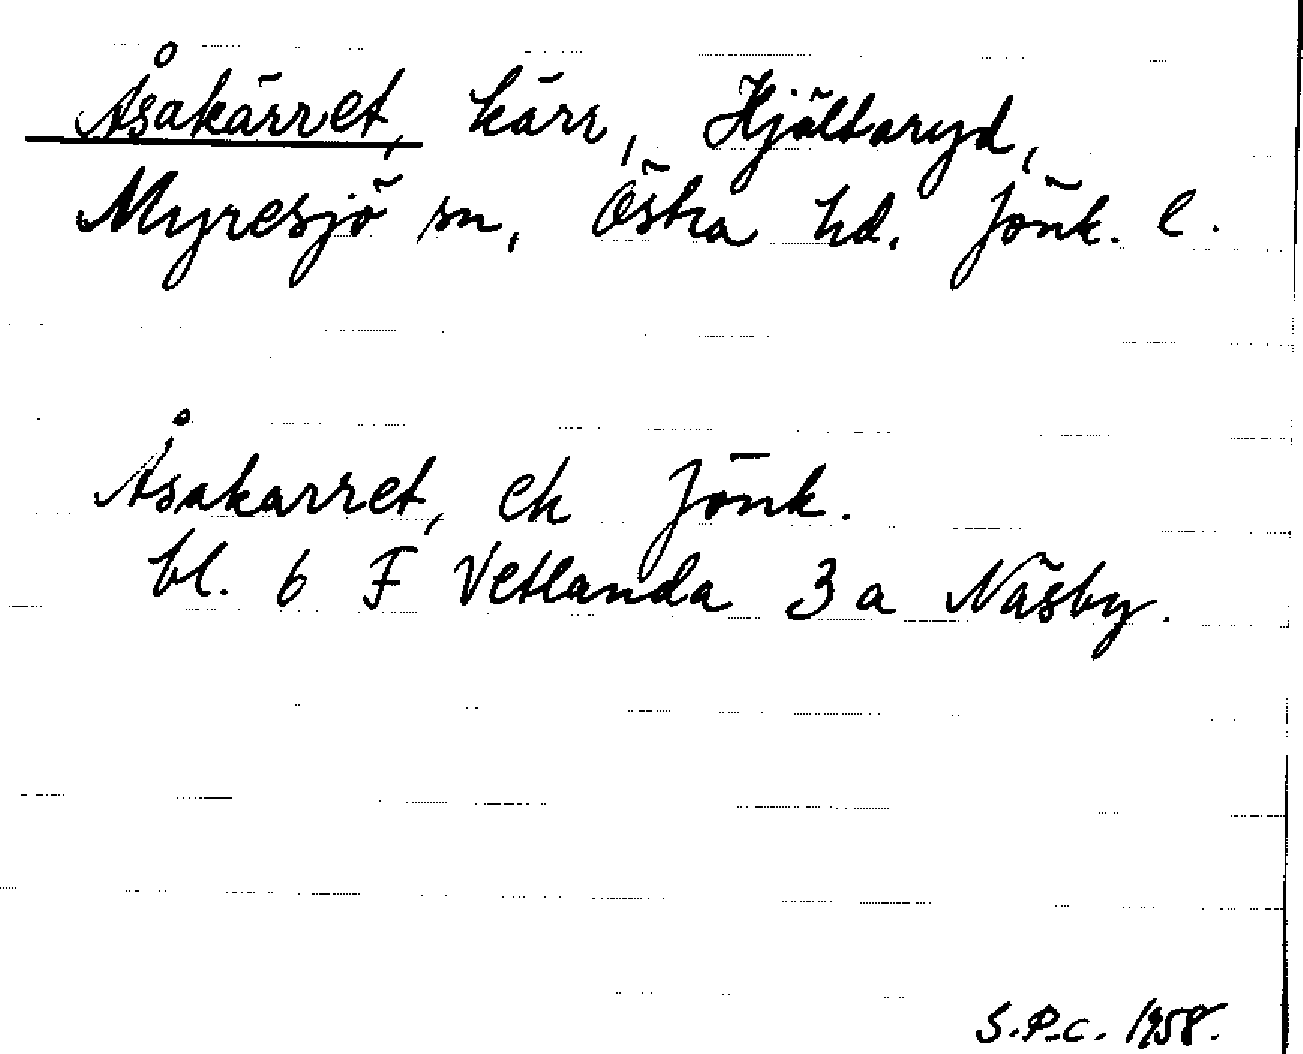 Åsakärret, kärr, Hjältaryd,
Myresjö sn, Östra hd. Jönk. l.
Åsakarret, ek Jönk.
bl. 6 F Vetlanda 3 a Näsby.
S.P.C. 1958.